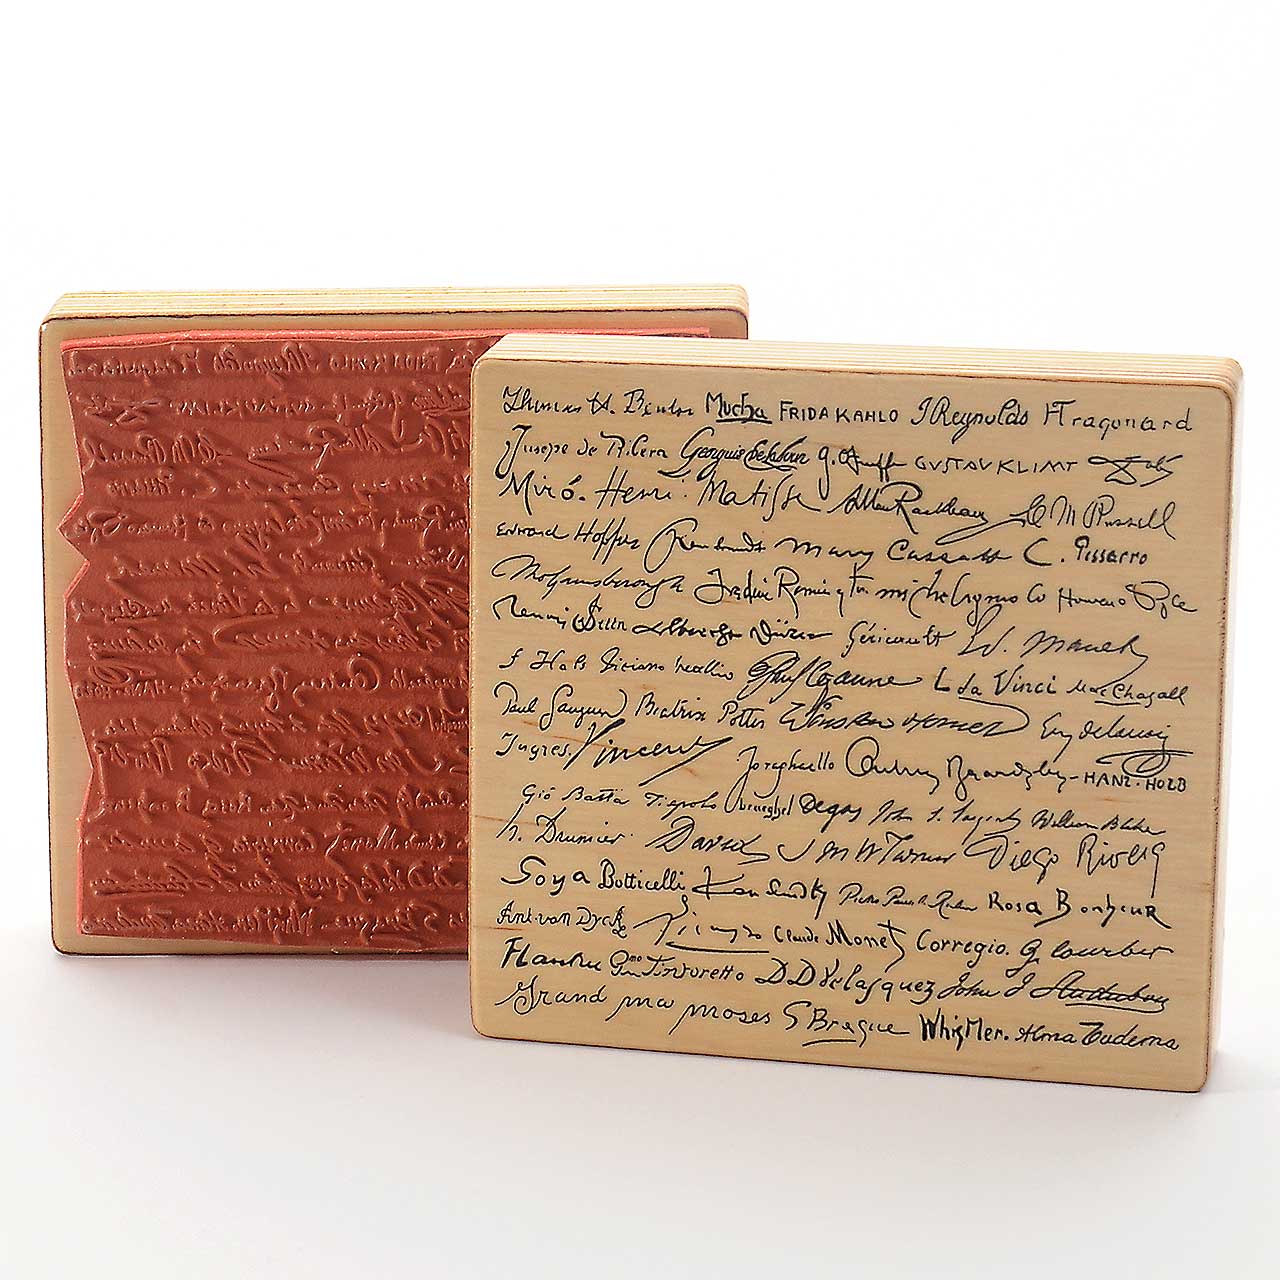 Thomas H. Benton Mucha FRIDA KAHLO J Reynolds HFragonard
Jusepe de Ribera Georguis De la tour GUSTAV KLIMT Dalí
Miró. Henri. Matisse Allan Ramsay C M Russell
Edward Hopper Rembrandt Mary Cassatt C. Pissarro
Gainsborough Frederic Remington michelagniolo Howard Pyle
Albrecht Dürer Géricault Ed. Manet
f Hals Ticiano vecellio Paul Cezanne L da Vinci Marc Chagall
Paul Gauguin Beatrix Potter Winslow Homer Eug delacroix
Ingres. Vincent Joraphaello Aubrey Beardsley - HANS. HOLB
Gio Batta Tiepolo brueghel Degas John S. Sargent William Blake
h. Daumier. David J M W Turner Diego Rivera
Goya Botticelli Kandinsky Pietro Pauolo Ruben Rosa Bonheur
Ant. van Dyck Picasso Claude Monet Corregio. G. Courbet
Tintoretto D D Velasquez John J Audubon
Grand ma moses G Braque Whistler. Alma Tadema